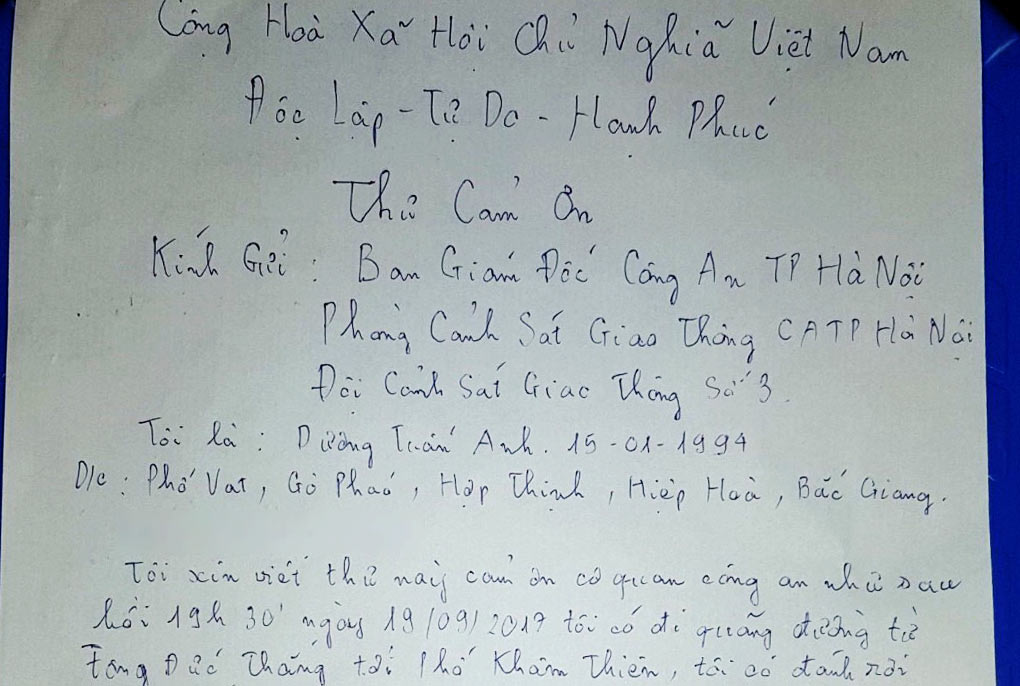 Cộng Hoà Xã Hội Chủ Nghĩa Việt Nam
Độc Lập - Tự Do - Hạnh Phúc
Thư Cảm Ơn
Kính Gửi : Ban Giám Đốc Công An TP Hà Nội
Phòng Cảnh Sát Giao Thông CATP Hà Nội
Đội Cảnh Sát Giao Thông Số 3.
Tôi là : Dương Tuấn Anh. 15-01-1994
D/c : Phố Vat, Gò Pháo, Hợp Thịnh, Hiệp Hoà, Bắc Giang.
Tôi xin viết thư này cảm ơn cơ quan công an như sau
hồi 19h 30' ngày 19/09/2017 tôi có đi quãng đường từ
Tông Đức Thắng tới Phố Khâm Thiên, tôi có đánh rơi